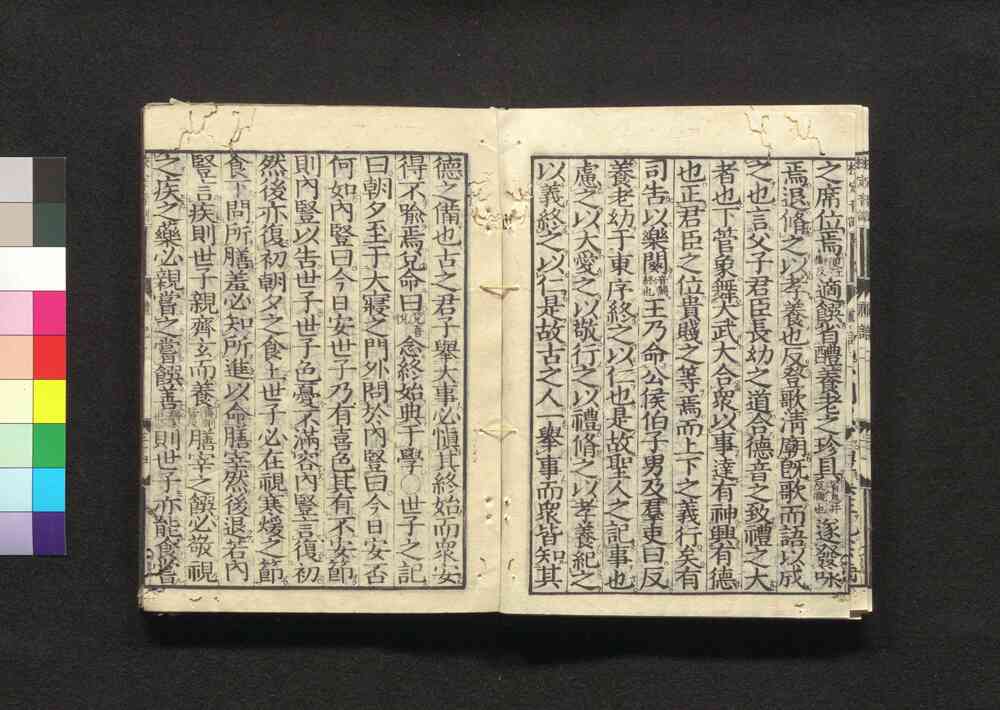 之席位焉適饌省醴養老之珍具遂發咏
焉退脩之以孝養也反登歌清廟既歌而語以成
之也言父子君臣長幼之道合德音之致禮之大
者也下管象舞大武大合衆以事達有神興有德
也正君臣之位貴賤之等焉而上下之義行矣有
司告以樂闋王乃命公侯伯子男及羣吏曰反
養老幼于東序終之以仁也是故聖人之記事也
慮之以大愛之以敬行之以禮脩之以孝養紀之
以義終之以仁是故古之人一舉事而衆皆知其
德之備也古之君子舉大事必慎其終始而衆安
得不喻焉兌命曰念終始典于學○世子之記
曰朝夕至于大寢之門外問於內豎曰今日安否
何如內豎曰今日安世子乃有喜色其有不安節
則內豎以告世子世子色憂不滿容內豎言復初
然後亦復初朝夕之食上世子必在視寒煖之節
食下問所膳羞必知所進以命膳宰然後退若內
豎言疾則世子親齊玄而養膳宰之饌必敬視
之疾之藥必親嘗之嘗饌善則世子亦能食嘗